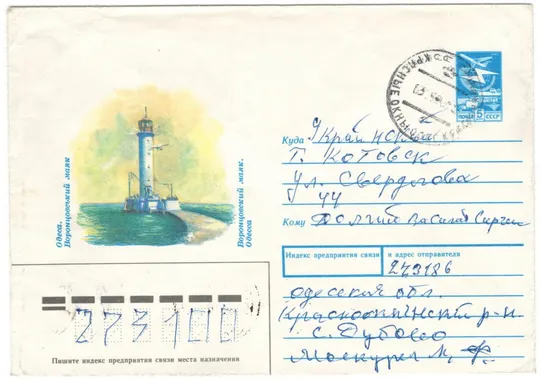 ПОЧТА СССР 5
КРАСНЫЕ ОКНЫ
Одеса.
Воронцовський маяк
Воронцовский маяк.
Одесса
Куда Украинская
г. Котовск
ул. Свердлова
44
Кому Долгий Василий
Индекс предприятия связи и адрес отправителя
273186
одеская обл.
Краснокнянский р-н.
с. Дубово
273100
Пишите индекс предприятия связи места назначения